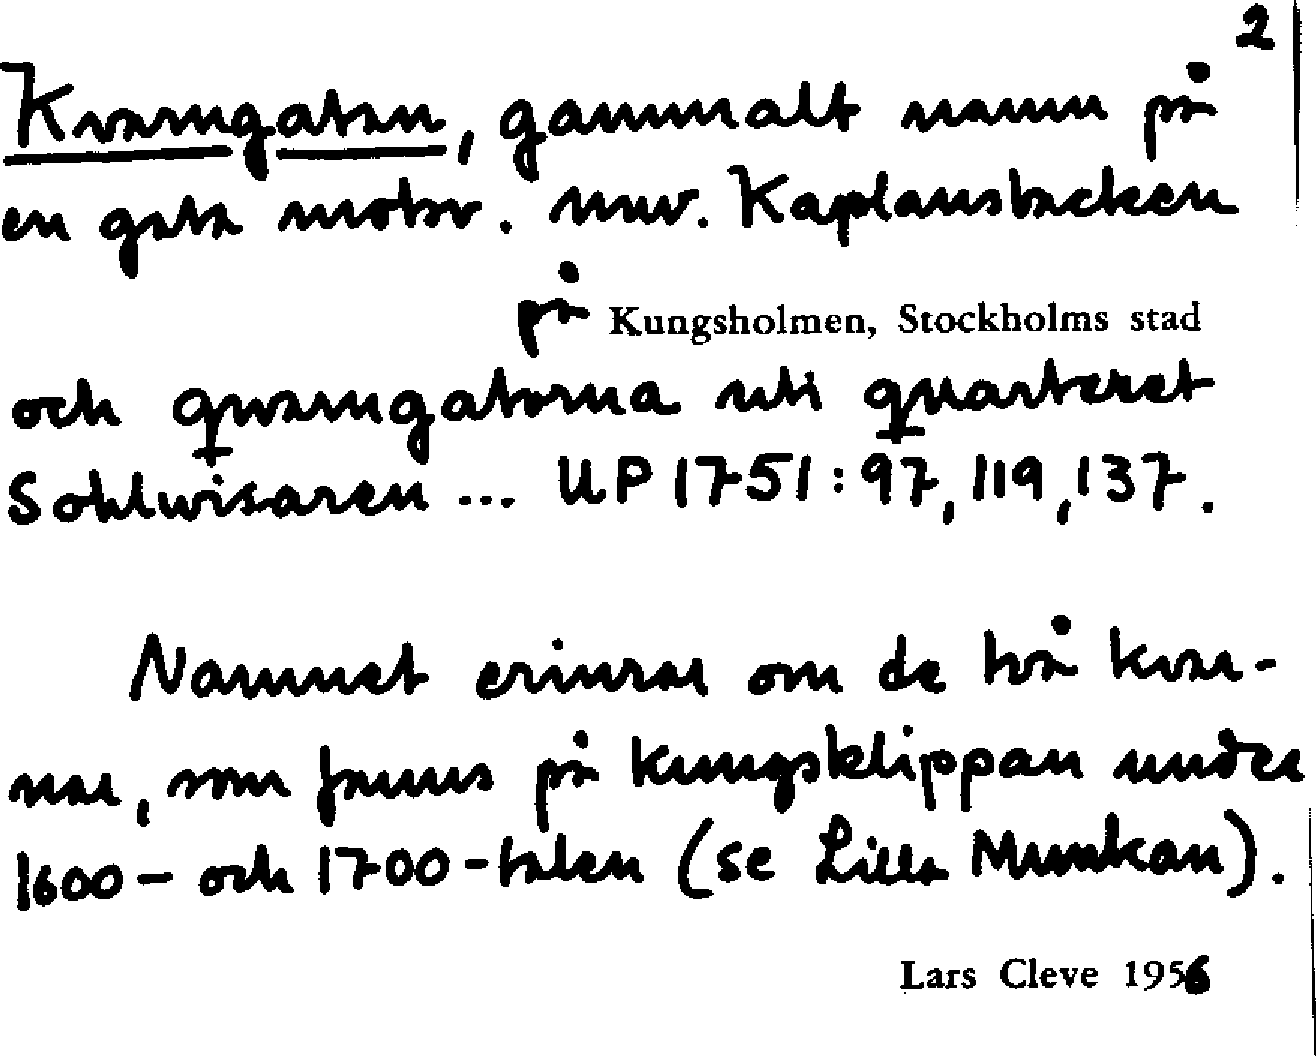 2
Kvarngatan, gammalt namn på
en gata motsv. nuv. Kaplansbacken
på Kungsholmen, Stockholms stad
och qwarngatorna uti quarteret
Sohlwisaren ... UP 1751:97, 119, 137.
Namnet erinrar om de två kvar-
nar, som fanns på Kungsklippan under
1600- och 1700-talen (se Lilla Munkan).
Lars Cleve 1956